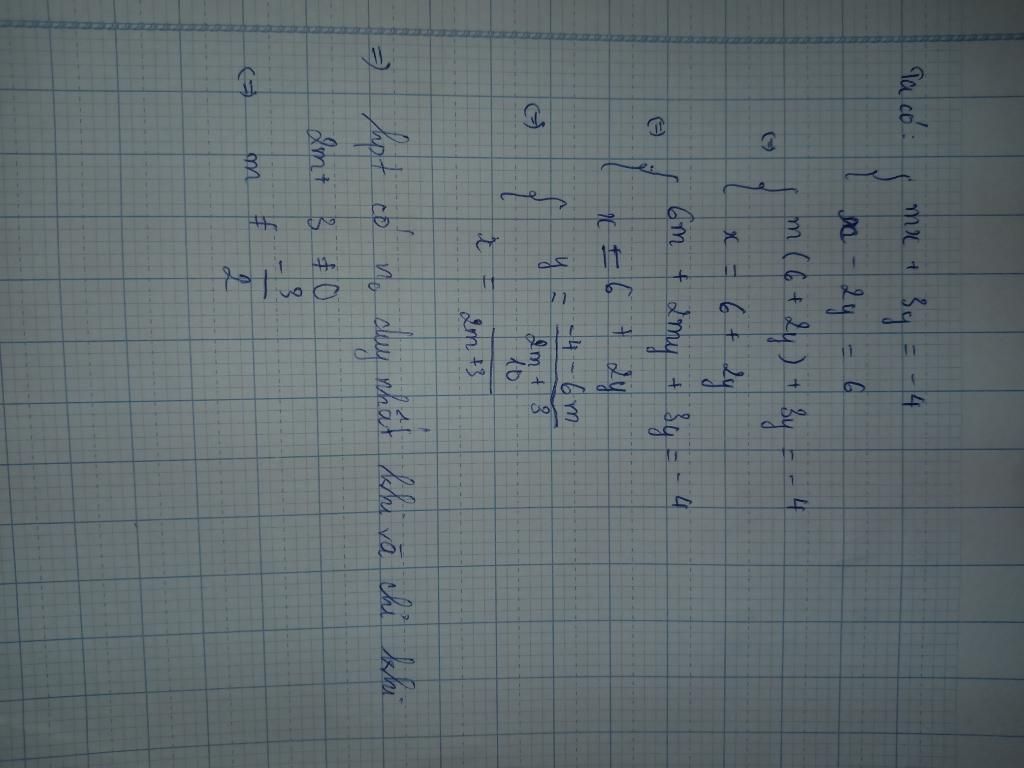 Ta có: { mx + 3y = -4
x - 2y = 6
(=) { m(6 + 2y) + 3y = -4
x = 6 + 2y
(=) { 6m + 2my + 3y = -4
x = 6 + 2y
(=) { y = -4 - 6m / 2m + 3
x = 10 / 2m + 3
=) hpt có no duy nhất khi và chỉ khi
2m + 3 ≠ 0
(=) m ≠ -3 / 2